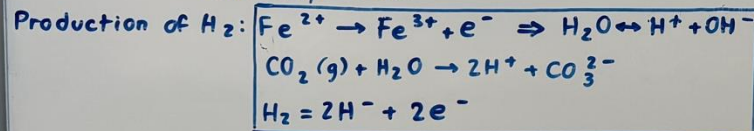 Production of H₂: Fe²⁺ → Fe³⁺ + e⁻ ⇒ H₂O ↔ H⁺ + OH⁻
CO₂ (g) + H₂O → 2H⁺ + CO₃²⁻
H₂ = 2H⁻ + 2e⁻